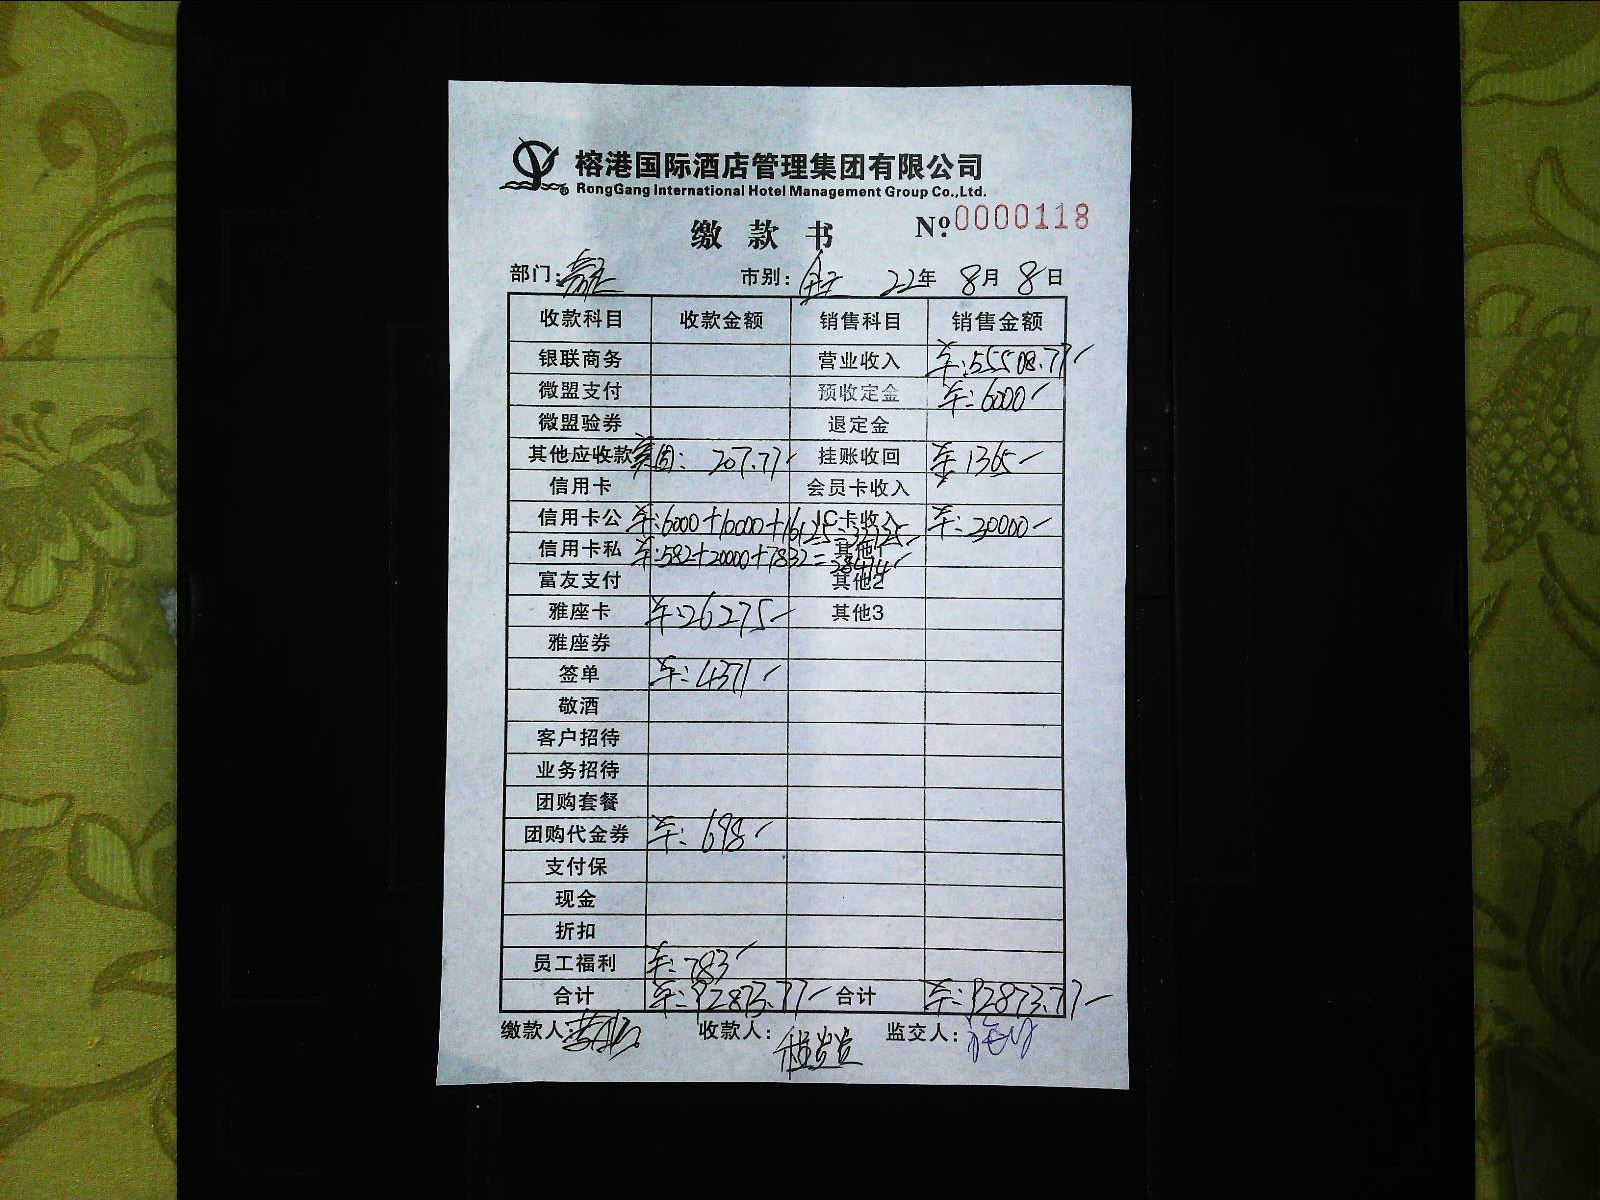 榕港国际酒店管理集团有限公司
RongGang International Hotel Management Group Co.,Ltd.
缴款书 Nº 0000118
部门: 市别: 全天 22年 8月 8日
收款科目 收款金额 销售科目 销售金额
银联商务 营业收入 ¥:55508.77
微盟支付 预收定金 ¥:6000
微盟验券 退定金
其他应收款 美团: 207.77 挂账收回 ¥:1365
信用卡 会员卡收入
信用卡公 ¥:6000+10000+16125=32125 IC卡收入 ¥:30000
信用卡私 ¥:582+20000+7832=28414 其他1
富友支付 其他2
雅座卡 ¥:26275 其他3
雅座券
签单 ¥:4371
敬酒
客户招待
业务招待
团购套餐
团购代金券 ¥:698
支付保
现金
折扣
员工福利 ¥:783
合计 ¥:92873.77 合计 ¥:92873.77
缴款人: 收款人: 监交人: